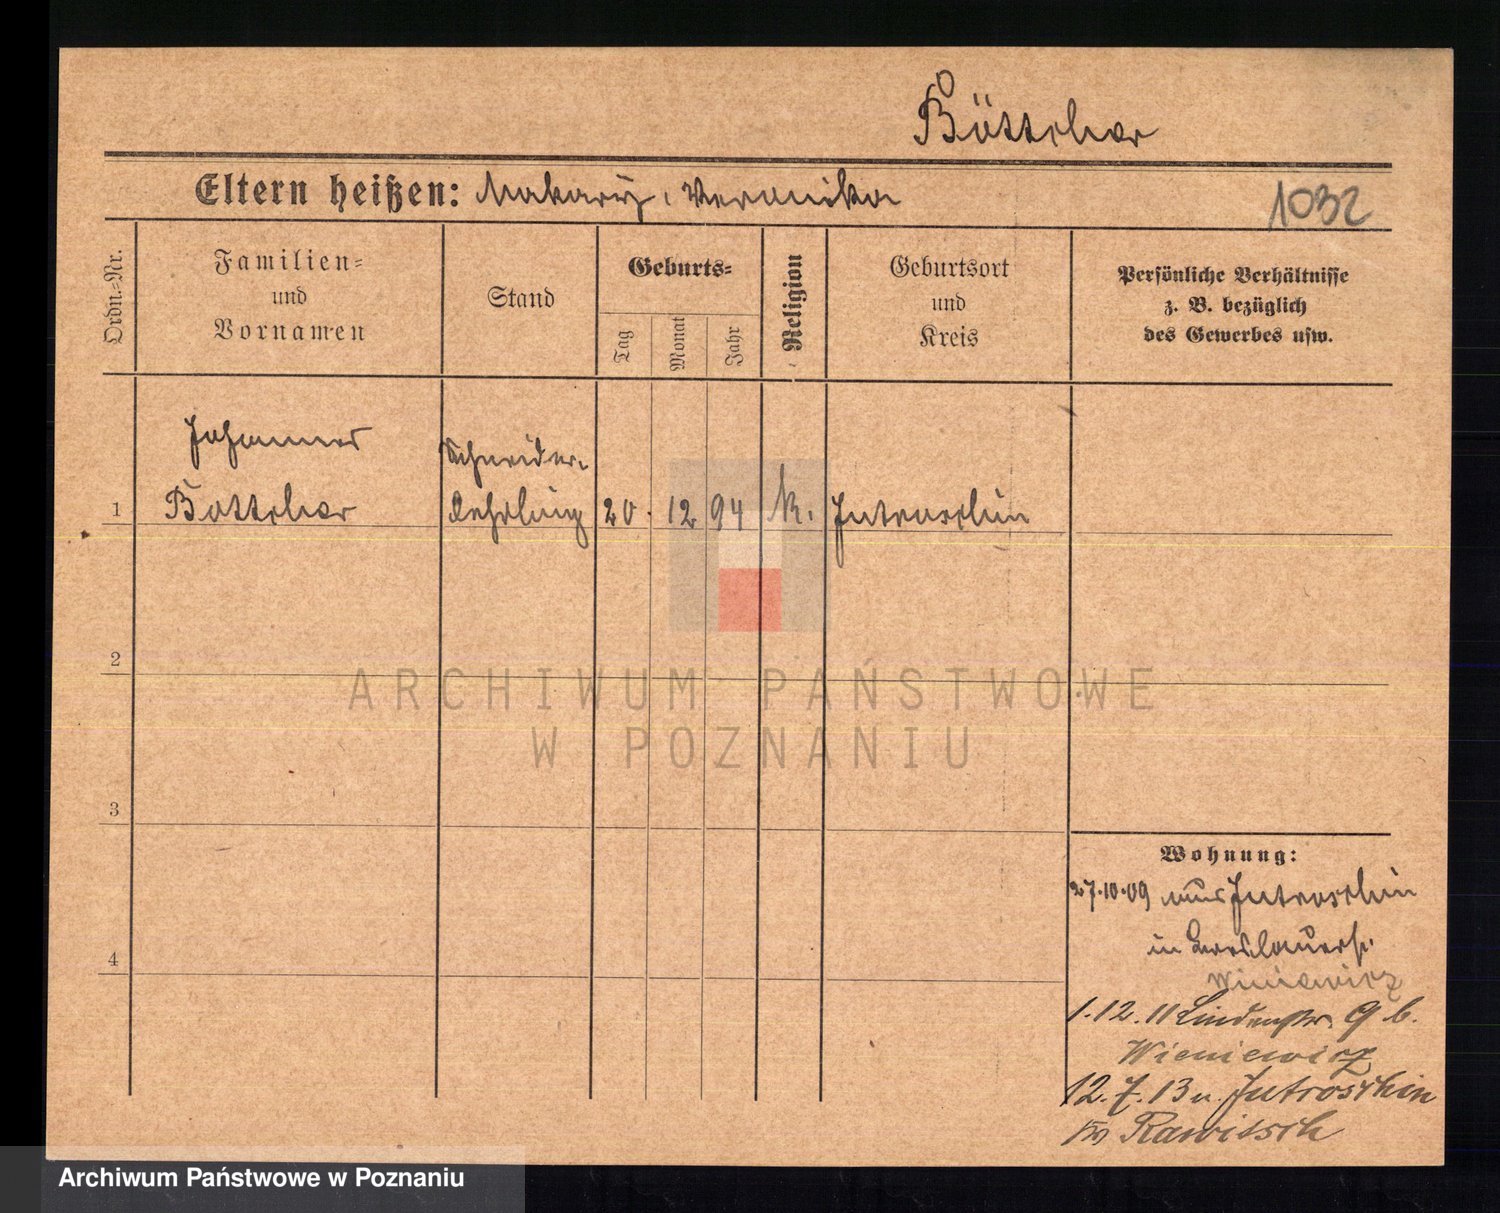 Böttcher
Eltern heißen: Makary, Veronika
1032
Ordn.-Nr.
Familien-
und
Vornamen
Stand
Geburts-
Tag
Monat
Jahr
Religion
Geburtsort
und
Kreis
Persönliche Verhältnisse
z. B. bezüglich
des Gewerbes usw.
Johannes
Schneider-
1 Bottcher Lehrling 20. 12 94 k. Jutroschin
2
ARCHIWUM PAŃSTWOWE
W POZNANIU
3
Wohnung:
27.10.09 aus Jutroschin
in
4
Winiewicz
1.12.11 Lindenstr. 9 b.
Wieniewicz
12.7.13 n. Jutroschin
Rawitsch
Archiwum Państwowe w Poznaniu